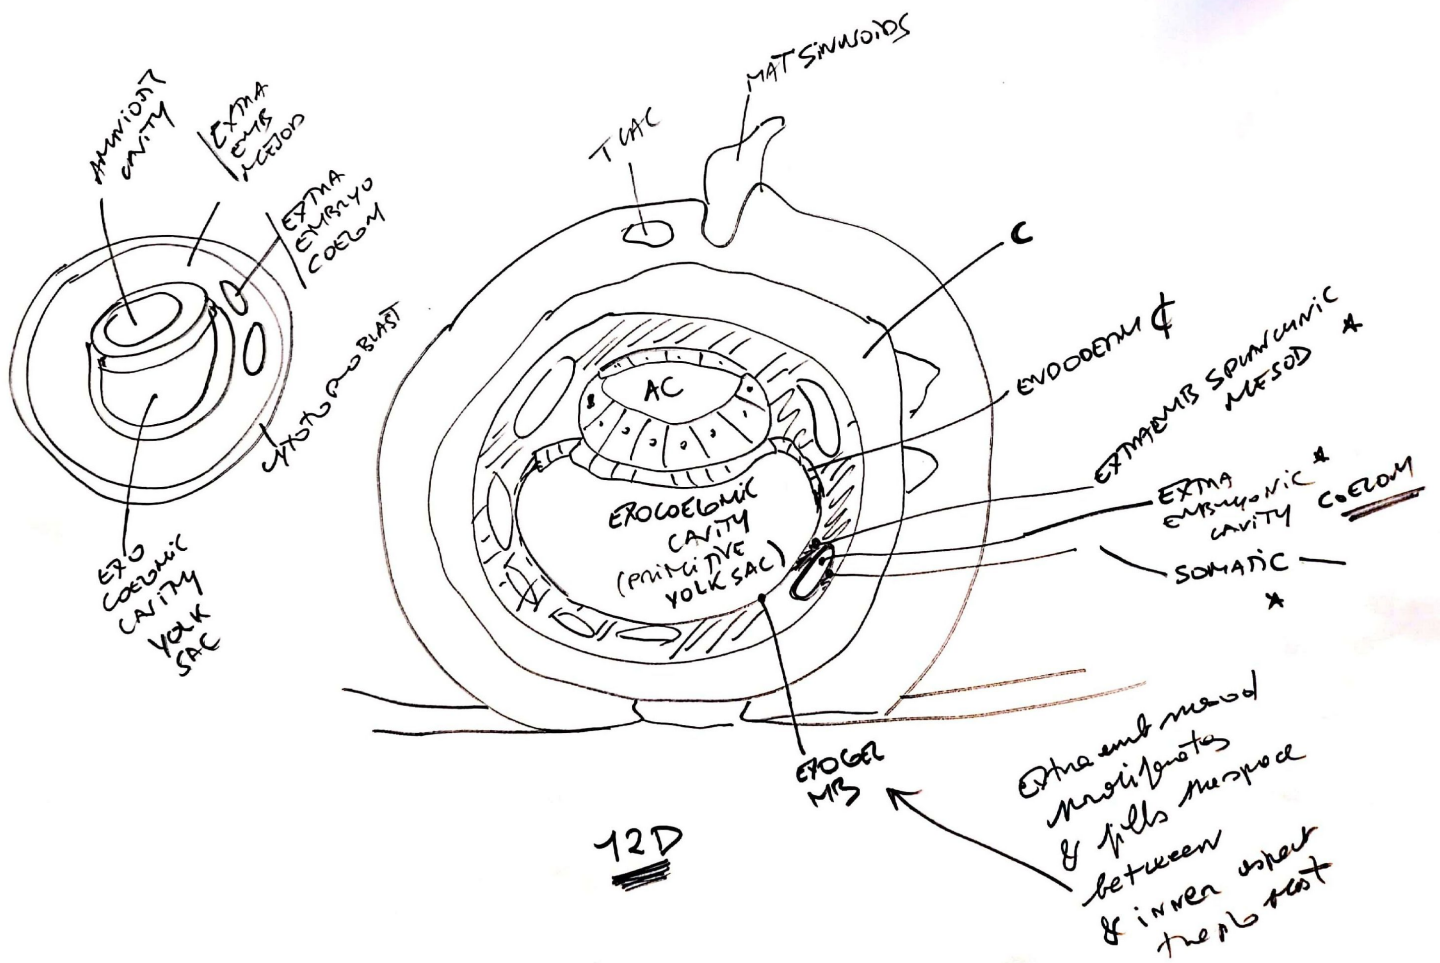 AMNIOT
CAVITY
EXTRA
EMB
MESOD
EXTRA
EMBRYO
COELOM
CYTOTROPHOBLAST
EXO
COELOMIC
CAVITY
YOLK
SAC
T LAC
MAT SINUSOIDS
C
ENDODERM
EXTRAEMB SPLANCHNIC
MESOD
EXTRA
EMBRYONIC
CAVITY COELOM
SOMATIC
AC
EXOCOELOMIC
CAVITY
(PRIMITIVE
YOLK SAC)
EXOCEL
MB
12D
Extra emb mesod
proliferates
& fills the space
between
& inner aspect